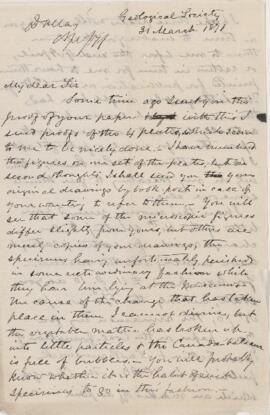 Geological Society
31 March 1891
My dear Sir
Some time ago I sent you in the
proof of your paper with this I
send proofs of the 4 plates, which seem
to me to be nicely done. I have numbered
the figures on one set of the plates, but on
second thoughts, I shall send you your
original drawings by book post in case
you want to refer to them. You will
see that some of the microscopic figures
differ slightly from yours, but others are
merely copies of your drawings, the
specimens having unfortunately perished
in some extraordinary fashion while
they have been lying at the Museum.
The cause of the change that has taken
place in them I cannot divine, but
the vegetable matter has broken up
into little particles & the Canada balsam
is full of bubbles. You will probably
know whether it is the habit of such
specimens to go in this fashion